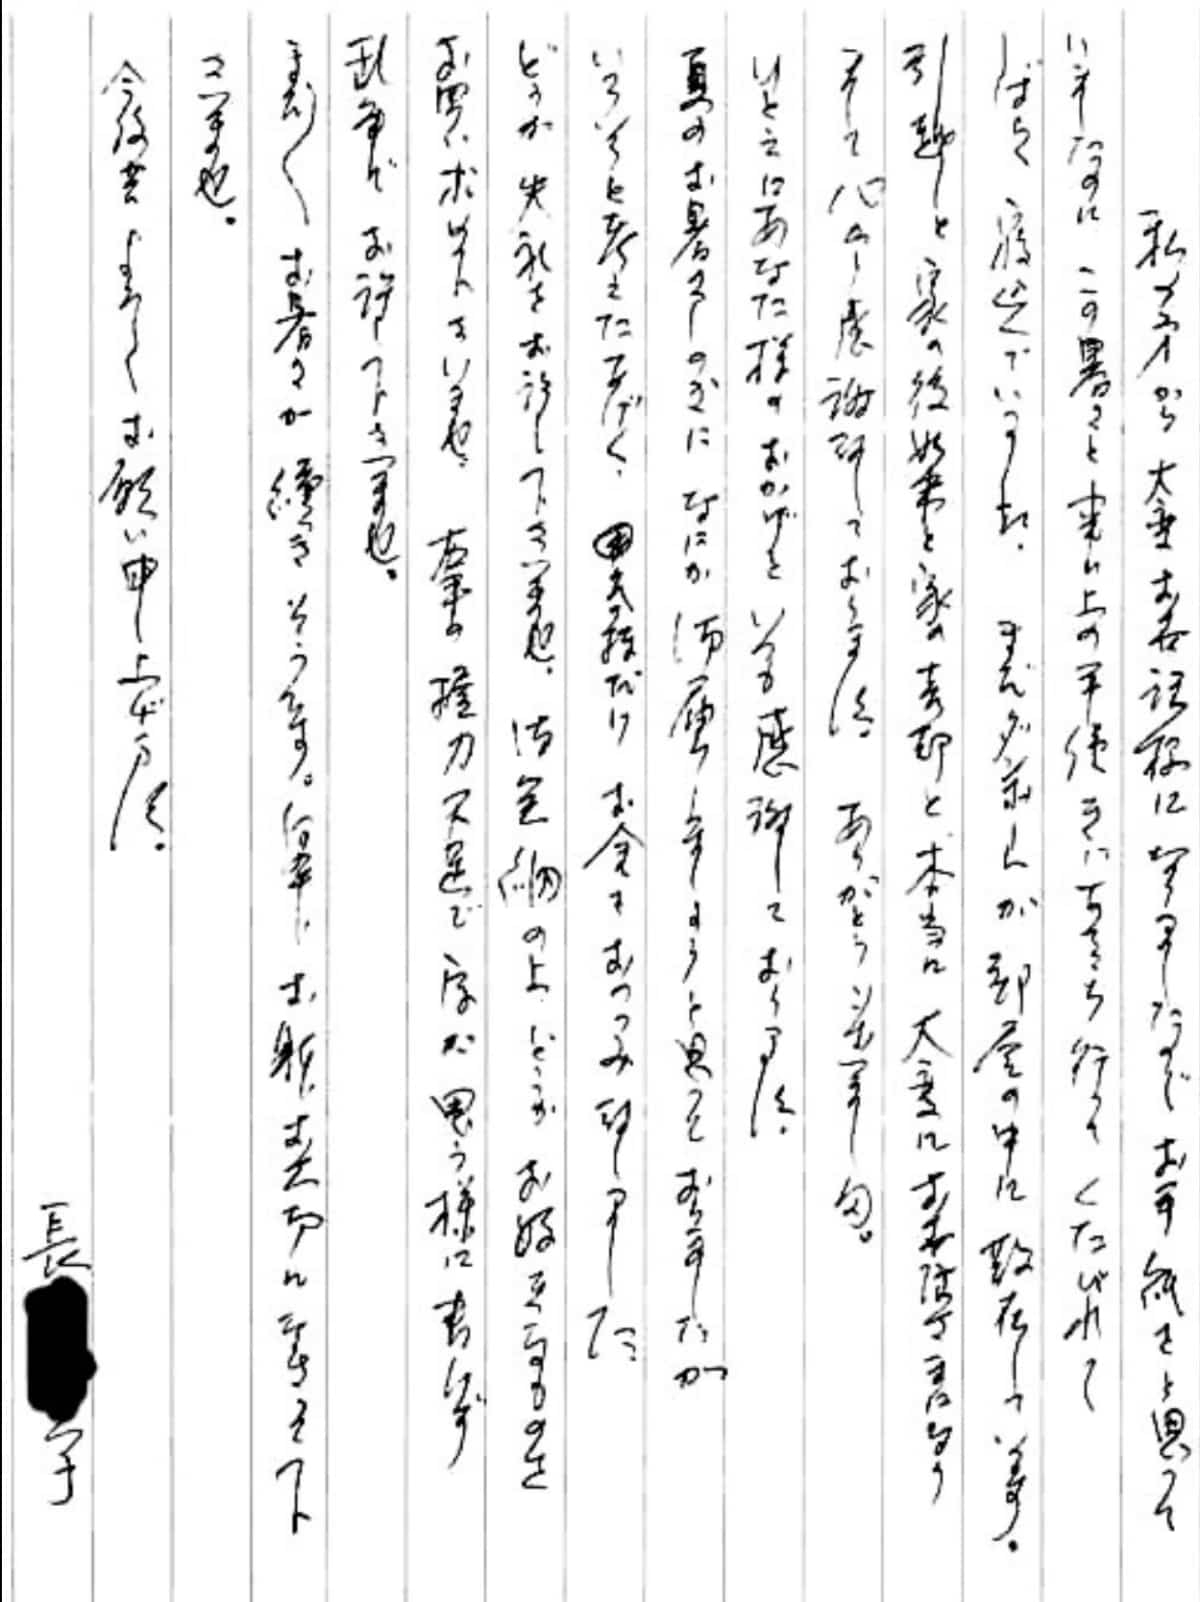 私の方から大変お世話様になりましたので お手紙をと思って
いましたのに この暑さと 年以上の手伝いに あちち行って くたびれて
しばらく 寝込んでいました。 まだダンボールが部屋の中に 散在しています。
引越しと 家の後始末と 家の売却と 本当に 大変に お世話様になり
まして 心から感謝致しております。 ありがとうございました。
ひとえにあなた様の おかげと いつも感謝しております。
夏のお暑さしのぎに なにか 御届けしましょうと思って おりましたが
いろいろと考えたあげく、 お金を おつつみ致しました
どうか 失礼をお許し下さいませ。 御笑納の上 どうか お好きなものを
お買い求め下さいませ。 右手の 握力不足で 字が 思う様に書けず
乱筆で お許し下さいませ。
まだまだ お暑さが 続きそうです。何卒 お身体お大切になさって下
さいませ。
今後共 よろしく お願い申し上げます。
長 子